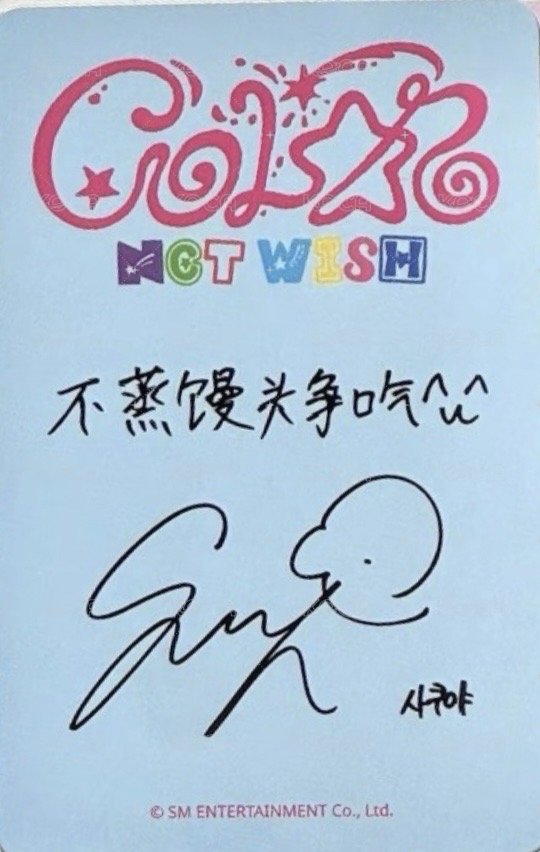 COLOR
NCT WISH
不蒸馒头争口气^ㅛ^
사쿠야
© SM ENTERTAINMENT Co., Ltd.